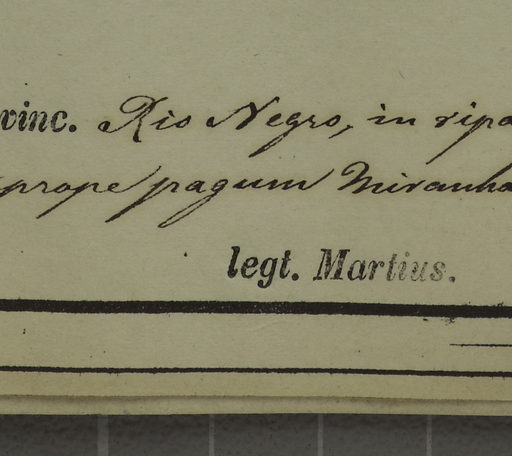 vinc. Rio Negro, in ripa
prope pagum Miranha
legt. Martius.